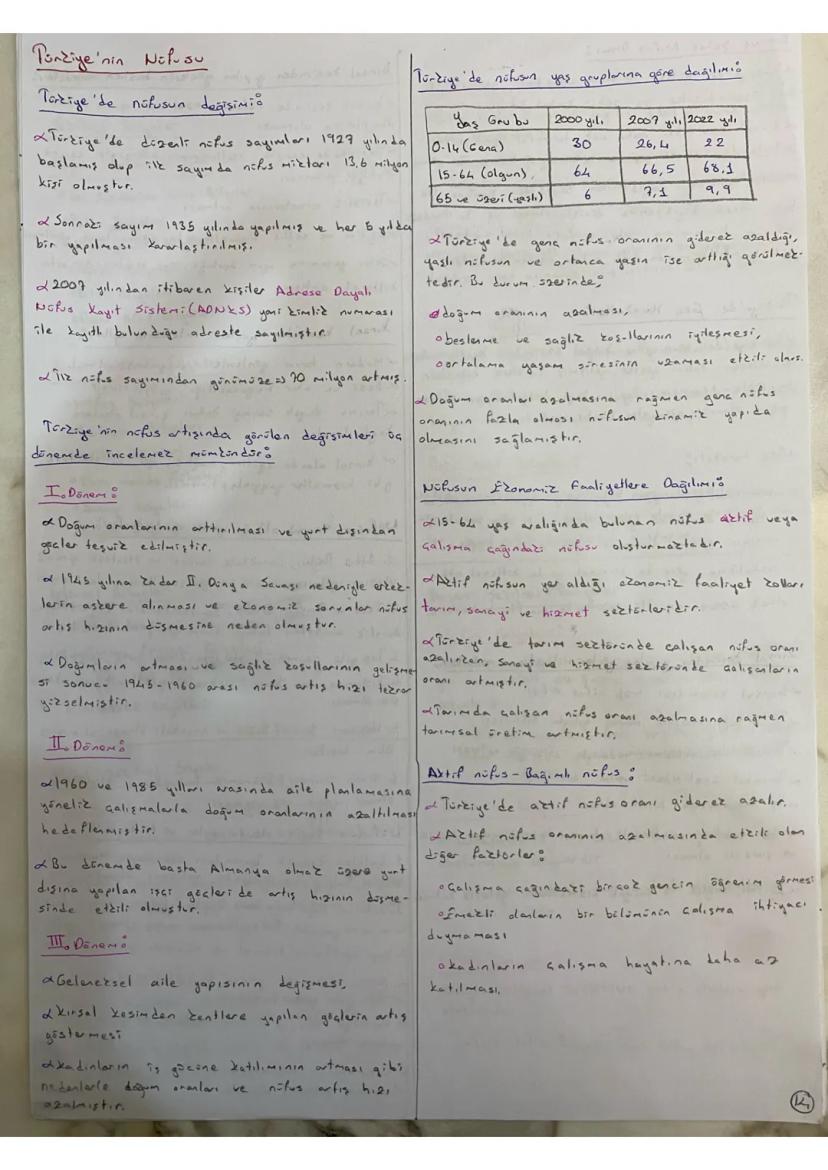 Türkiye'nin Nüfusu
Türkiye'de nüfusun değişimi:
Türkiye'de düzenli nüfus sayımları 1927 yılında
başlamış olup ilk sayımda nüfus miktarı 13,6 milyon
kişi olmuştur.
Sonraki sayım 1935 yılında yapılmış ve her 5 yılda
bir yapılması kararlaştırılmış.
2007 yılından itibaren kişiler Adrese Dayalı
Nüfus Kayıt Sistemi (ADNKS) yani kimlik numarası
ile kayıtlı bulunduğu adreste sayılmıştır.
İlk nüfus sayımından günümüze => 70 milyon artmış.
Türkiye'nin nüfus artışında görülen değişimleri üç
dönemde incelemek mümkündür:
I. Dönem:
Doğum oranlarının arttırılması ve yurt dışından
göçler teşvik edilmiştir.
1945 yılına kadar II. Dünya Savaşı nedeniyle erkek-
lerin askere alınması ve ekonomik sorunlar nüfus
artış hızının düşmesine neden olmuştur.
Doğumların artması ve sağlık koşullarının gelişme-
si sonuc. 1945-1960 arası nüfus artış hızı tekrar
yükselmiştir.
II. Dönem:
1960 ve 1985 yılları arasında aile planlamasına
yönelik çalışmalarla doğum oranlarının azaltılması
hedeflenmiştir.
Bu dönemde başta Almanya olmak üzere yurt
dışına yapılan işçi göçleri de artış hızının düşme-
sinde etkili olmuştur.
III. Dönem:
Geleneksel aile yapısının değişmesi,
Kırsal kesimden kentlere yapılan göçlerin artış
göstermesi
Kadınların iş gücüne katılımının artması gibi
nedenlerle doğum oranları ve nüfus artış hızı
azalmıştır.
Türkiye'de nüfusun yaş gruplarına göre dağılımı:
Yaş Grubu 2000 yılı 2007 yılı 2022 yılı
0-14 (Genç) 30 26,4 22
15-64 (olgun) 64 66,5 68,1
65 ve üzeri (yaşlı) 6 7,1 9,9
Türkiye'de genç nüfus oranının giderek azaldığı,
yaşlı nüfusun ve ortanca yaşın ise arttığı görülmek-
tedir. Bu durum üzerinde;
doğum oranının azalması,
beslenme ve sağlık koşullarının iyileşmesi,
ortalama yaşam süresinin uzaması etkili olmuş.
Doğum oranları azalmasına rağmen genç nüfus
oranının fazla olması nüfusun dinamik yapıda
olmasını sağlamıştır.
Nüfusun Ekonomik Faaliyetlere Dağılımı:
15-64 yaş aralığında bulunan nüfus aktif veya
çalışma çağındaki nüfusu oluşturmaktadır.
Aktif nüfusun yer aldığı ekonomik faaliyet kolları
tarım, sanayi ve hizmet sektörleridir.
Türkiye'de tarım sektöründe çalışan nüfus oranı
azalırken, sanayi ve hizmet sektöründe çalışanların
oranı artmıştır.
Tarımda çalışan nüfus oranı azalmasına rağmen
tarımsal üretim artmıştır.
Aktif nüfus - Bağımlı nüfus:
Türkiye'de aktif nüfus oranı giderek azalır.
Aktif nüfus oranının azalmasında etkili olan
diğer faktörler:
Çalışma çağındaki birçok gencin öğrenim görmesi
Emekli olanların bir bölümünün çalışma ihtiyacı
duymaması
Kadınların çalışma hayatına daha az
katılması.